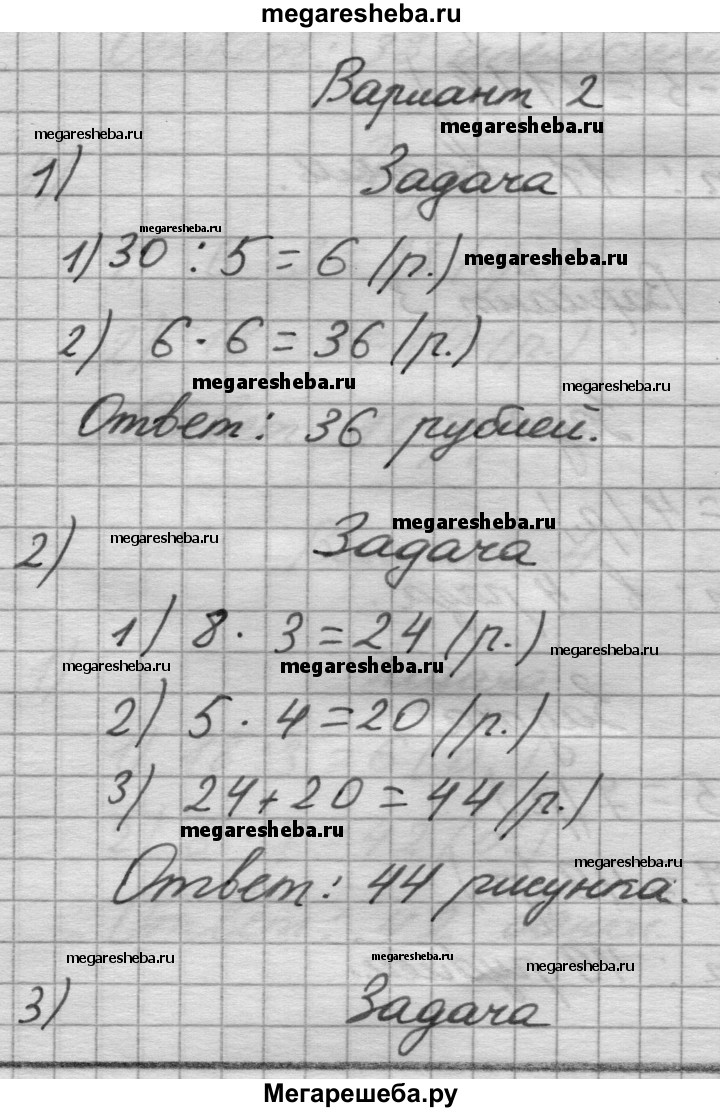 megaresheba.ru
Вариант 2
megaresheba.ru
megaresheba.ru
1) Задача
megaresheba.ru
1) 30 : 5 = 6 (р.) megaresheba.ru
2) 6 · 6 = 36 (р.)
megaresheba.ru
megaresheba.ru
Ответ: 36 рублей.
megaresheba.ru
2) megaresheba.ru Задача
1) 8 · 3 = 24 (р.) megaresheba.ru
megaresheba.ru megaresheba.ru
2) 5 · 4 = 20 (р.)
3) 24 + 20 = 44 (р.)
megaresheba.ru
megaresheba.ru
Ответ: 44 рисунка.
megaresheba.ru megaresheba.ru megaresheba.ru
3) Задача
Мегарешеба.ру